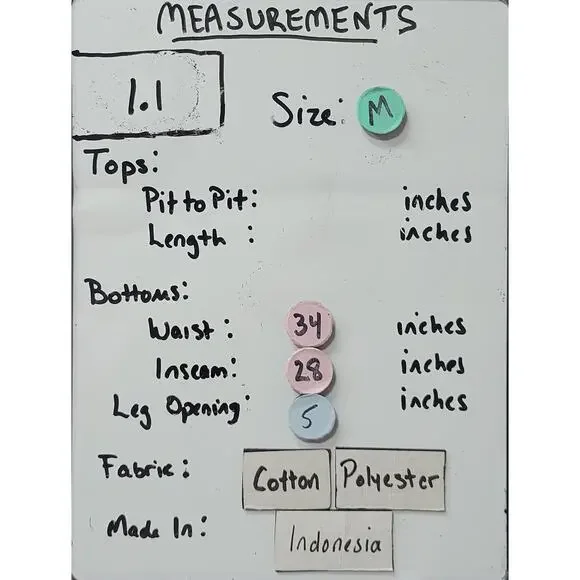 MEASUREMENTS
1.1
Size: M
Tops:
Pit to Pit: inches
Length : inches
Bottoms:
Waist : 34 inches
Inseam: 28 inches
Leg Opening: 5 inches
Fabric: Cotton Polyester
Made In: Indonesia